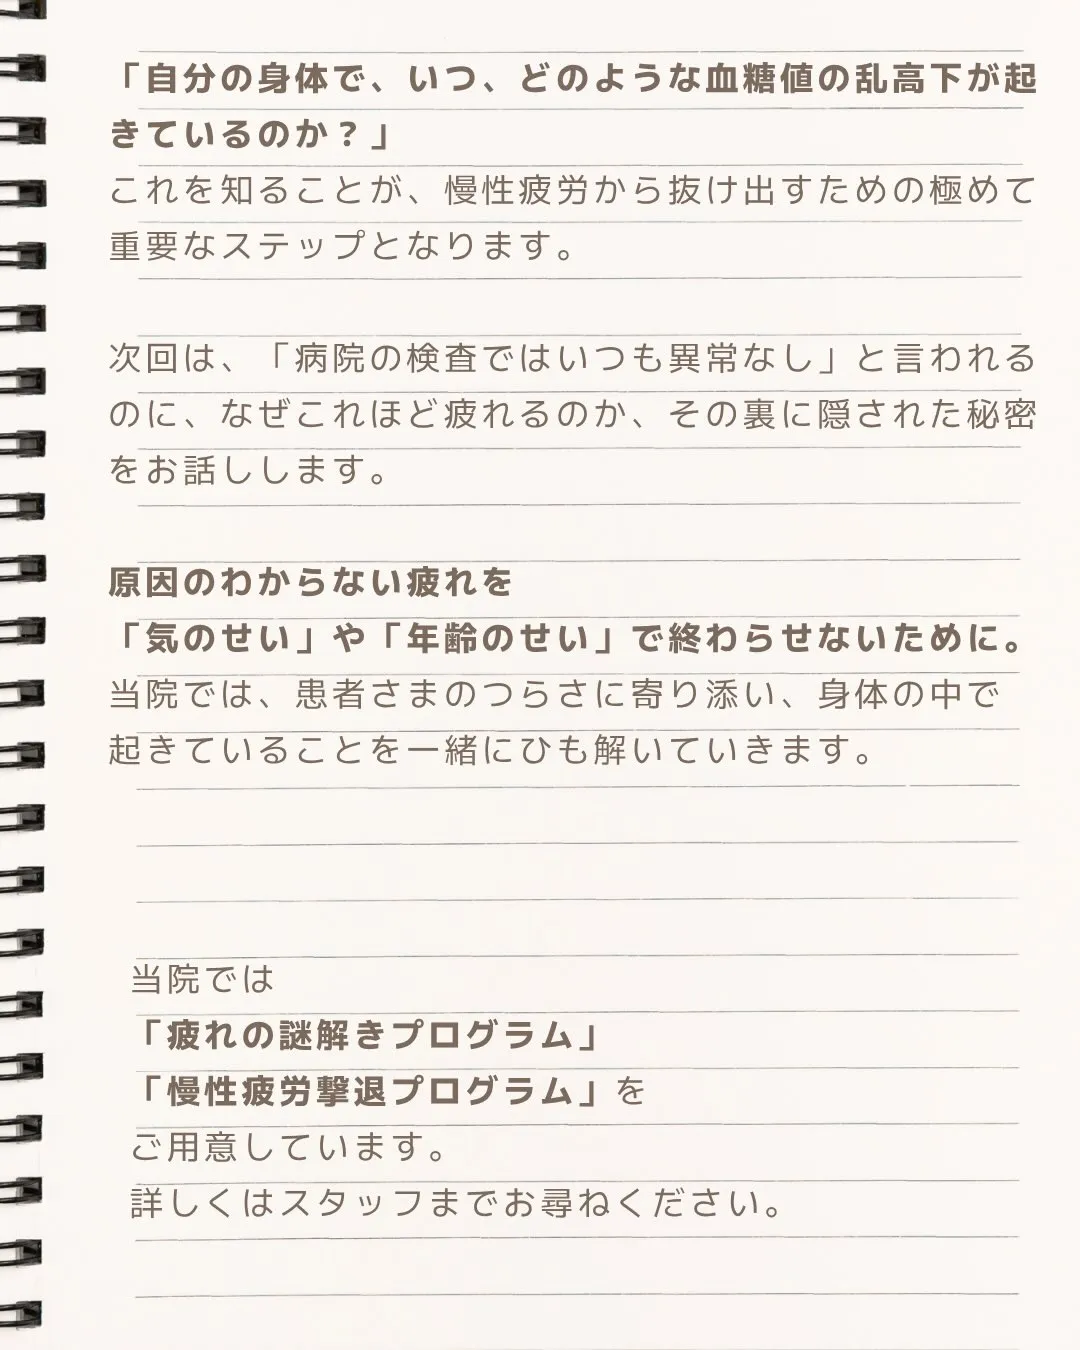 「自分の身体で、いつ、どのような血糖値の乱高下が起
きているのか？」
これを知ることが、慢性疲労から抜け出すための極めて
重要なステップとなります。
次回は、「病院の検査ではいつも異常なし」と言われる
のに、なぜこれほど疲れるのか、その裏に隠された秘密
をお話しします。
原因のわからない疲れを
「気のせい」や「年齢のせい」で終わらせないために。
当院では、患者さまのつらさに寄り添い、身体の中で
起きていることを一緒にひも解いていきます。
当院では
「疲れの謎解きプログラム」
「慢性疲労撃退プログラム」を
ご用意しています。
詳しくはスタッフまでお尋ねください。